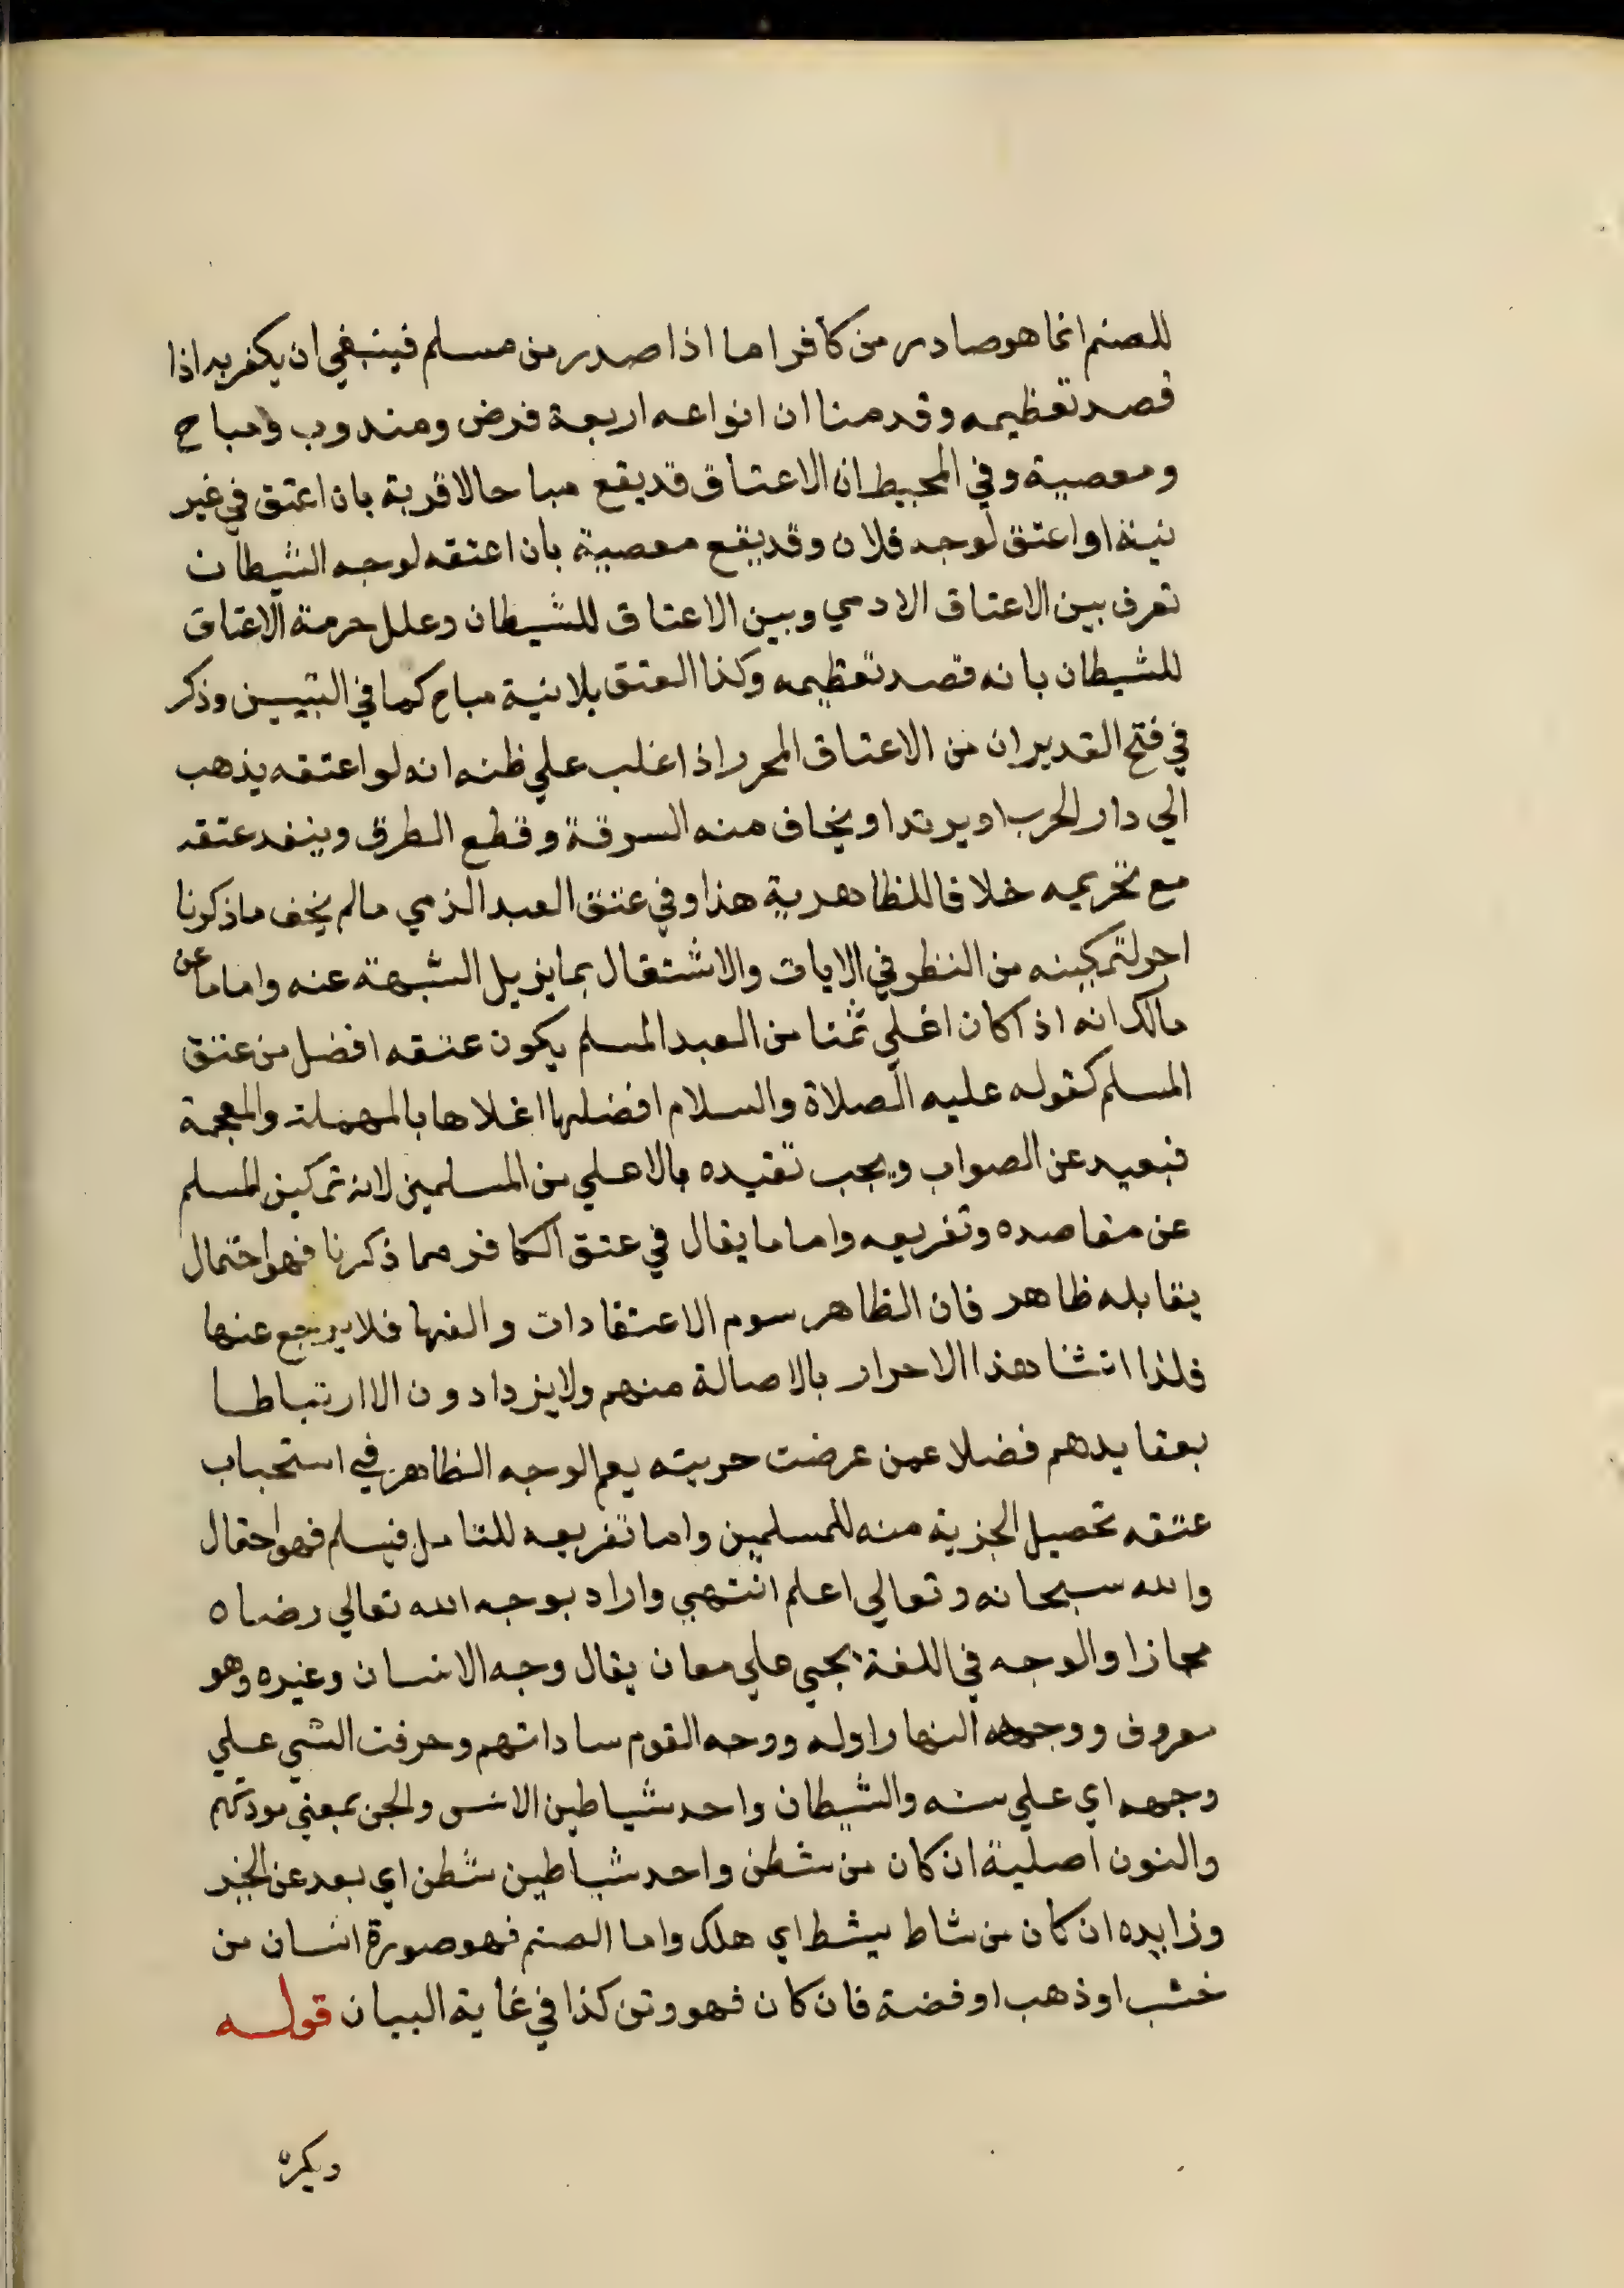 للصنم انما هو صادر من كافر اما اذا صدر من مسلم فينبغي ان يكفر به اذا
قصد تعظيمه وقدمنا ان انواعه اربعة فرض ومندوب ومباح
ومعصية وفي المحيط ان الاعتاق قد يقع مباحا لا قربة بان اعتق في غير
نية او اعتق لوجه فلان وقد يقع معصية بان اعتقه لوجه الشيطان
نعرف بين الاعتاق الادمي وبين الاعتاق للشيطان وعلل حرمة الاعتاق
للشيطان بانه قصد تعظيمه وكذا العتق بلا نية مباح كما في التبيين وذكر
في فتح القدير ان من الاعتاق المحرر اذا غلب علي ظنه انه لو اعتقه يذهب
الي دار الحرب او يرتد او يخاف منه السرقة وقطع الطرق وينفد عتقه
مع تحريمه خلافا للظاهرية هذا وفي عتق العبد الذمي مالم يخف ما ذكرنا
اجر لتمكينه من النظر في الايات والاشتغال بما يزيل الشبهة عنه واما ما عن
مالك انه اذا كان اغلي ثمنا من العبد المسلم يكون عتقه افضل من عتق
المسلم كقوله عليه الصلاة والسلام افضلها اغلاها بالمهملة والمعجمة
فبعيد عن الصواب ويجب تقيده بالاعلي من المسلمين لانه تمكين المسلم
عن مقاصده وتفريعه واما ما يقال في عتق الكافر مما ذكرنا فهو احتمال
يقابله ظاهر فان الظاهر سوم الاعتقادات والفها فلا يرجع عنها
فلذا انشاهذا الاحرار بالاصالة منهم ولا يزدادون الا ارتباطا
بعقايدهم فضلا عمن عرضت حريته يعم الوجه الظاهر في استحباب
عتقه تحصيل الجزية منه للمسلمين واما تفريعه للتامل فيسلم فهو احتمال
والله سبحانه وتعالي اعلم انتهي واراد بوجه الله تعالي رضاه
مجازا والوجه في اللغة يجيي علي معان يقال وجه الانسان وغيره وهو
معروف ووجه النهار اوله ووجه القوم ساداتهم وحرفت الشي علي
وجهه اي علي سننه والشيطان واحد شياطين الانس والجن بمعني مودتهم
والنون اصلية ان كان من شطن واحد شياطين شطن اي بعد عن الخير
وزايده ان كان من شاط يشط اي هلك واما الصنم فهو صورة انسان من
خشب او ذهب او فضة فان كان فهو وثن كذا في غاية البيان قوله
ويكره